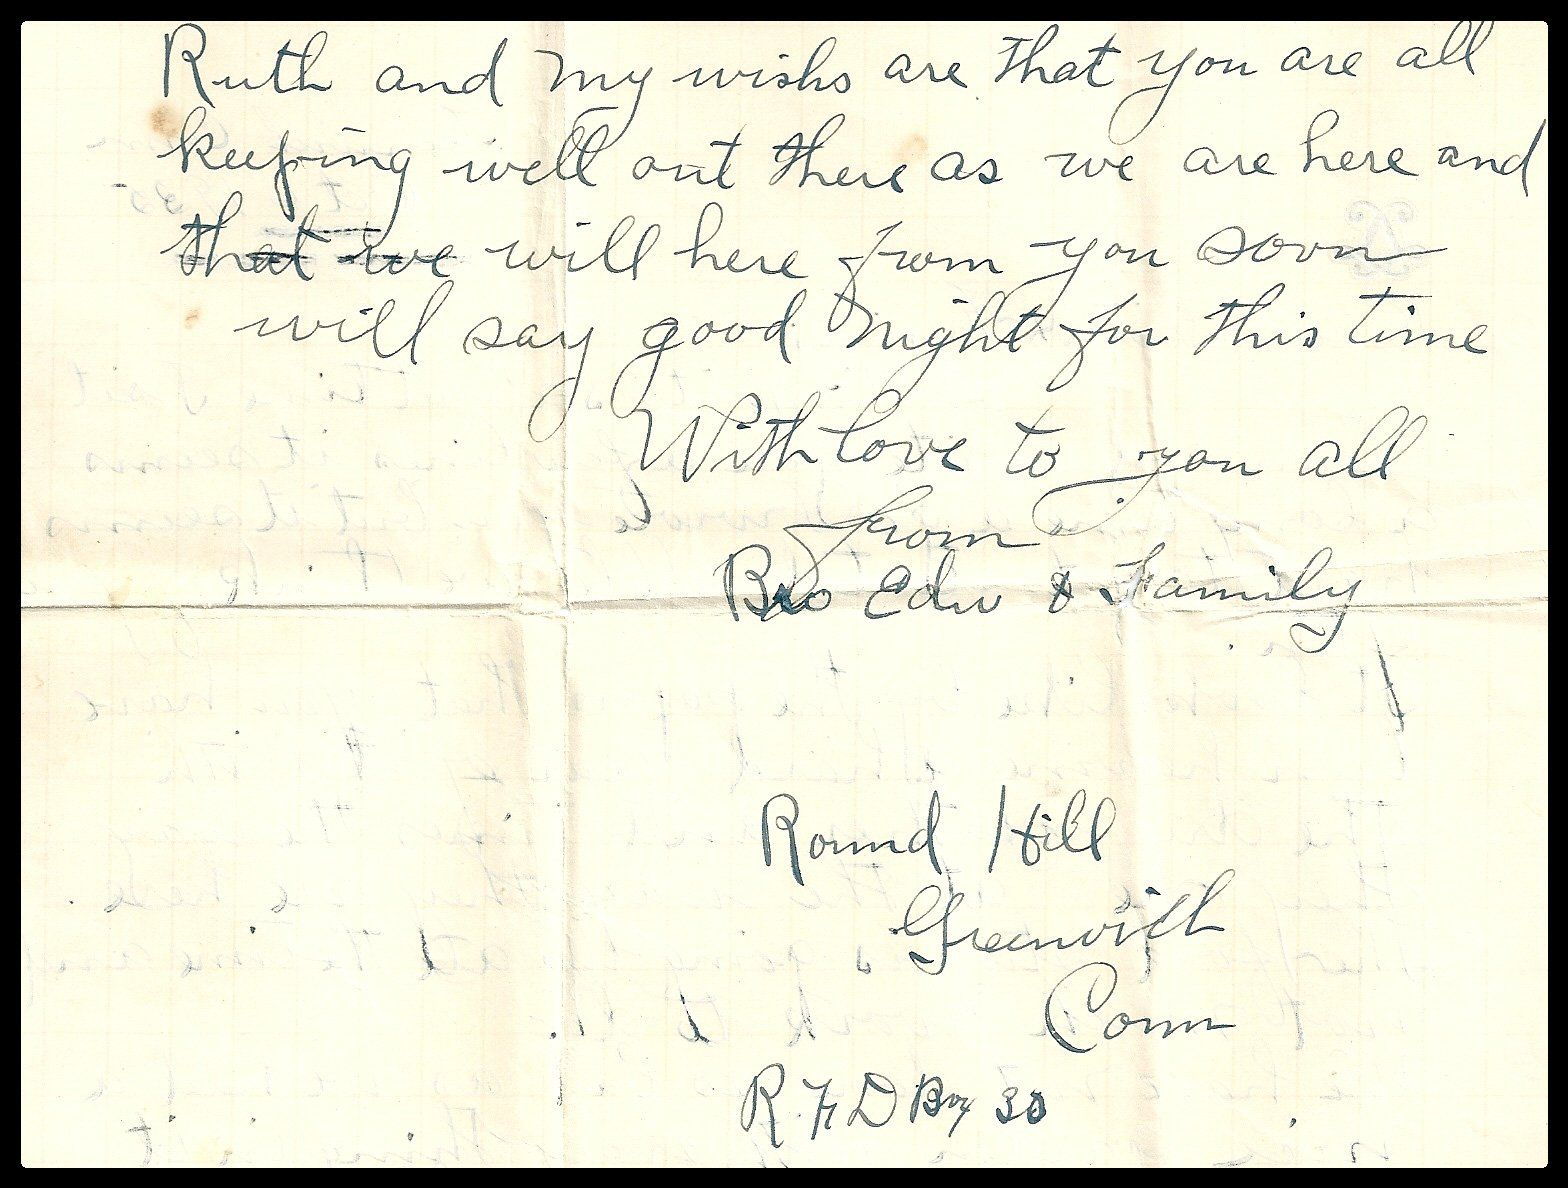 Ruth and my wishs are that you are all
keeping well out there as we are here and
that we will here from you soon
will say good night for this time
With love to you all
from
Bro Edw & Family
Round Hill
Greenwich
Conn
R.F.D Box 30